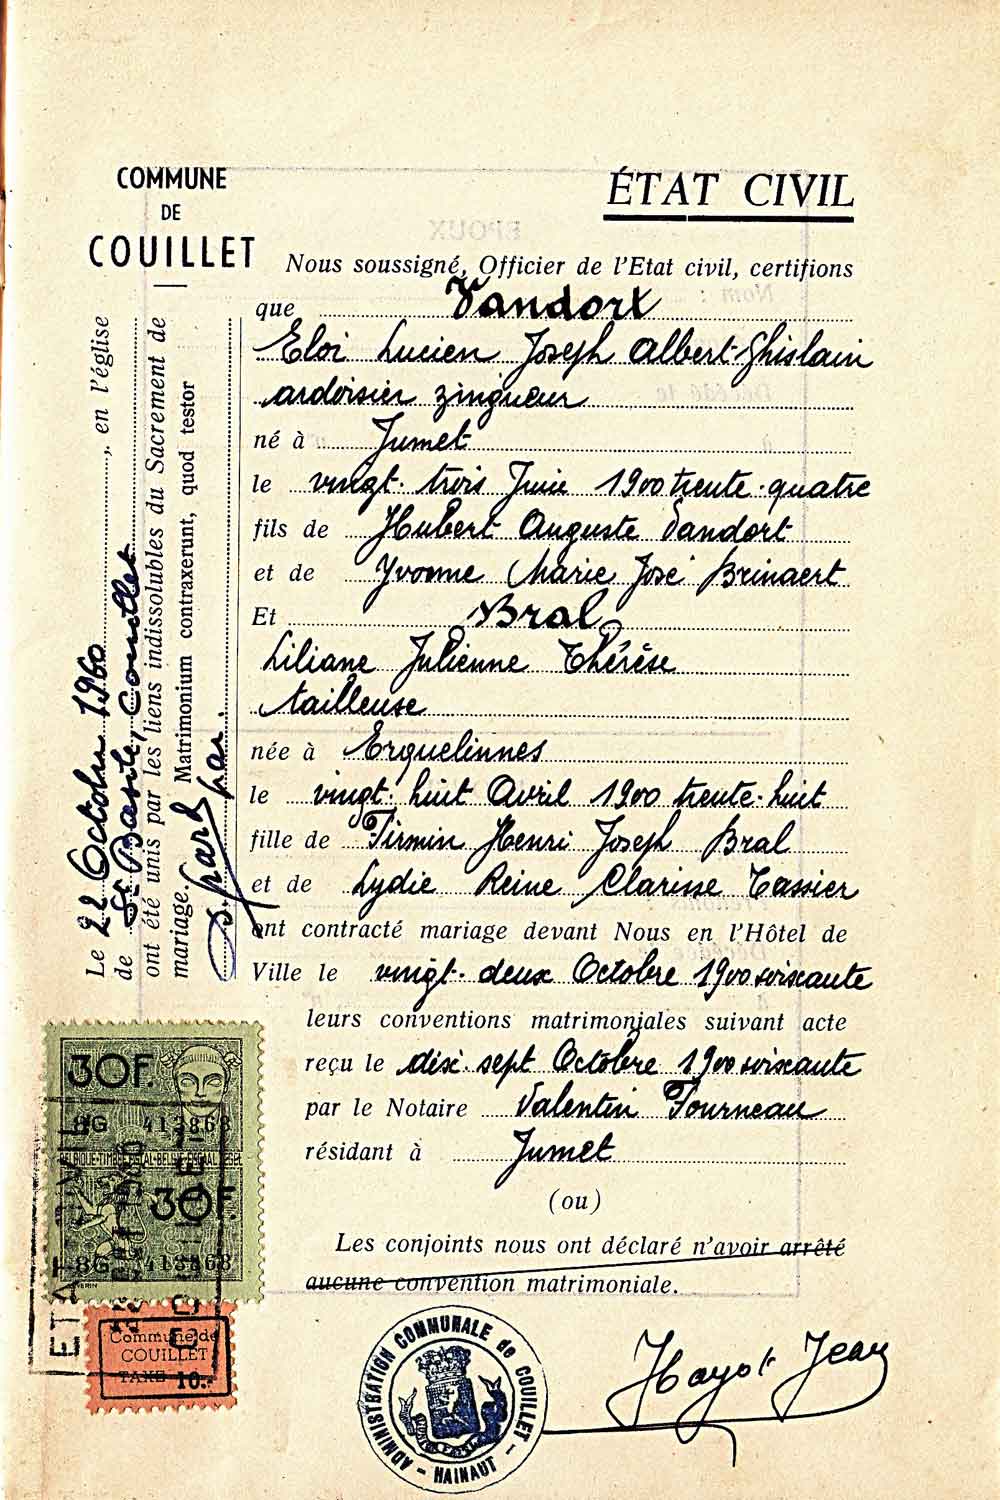 COMMUNE
DE
COUILLET
ÉTAT CIVIL
Nous soussigné, Officier de l'Etat civil, certifions
que Vandort
Eloi Lucien Joseph Albert Ghislain
ardoisier zingueur
né à Jumet
le vingt-trois Juin 1900 trente-quatre
fils de Hubert Auguste Vandort
et de Yvonne Marie José Brinaert
Et Bral
Liliane Julienne Thérèse
tailleuse
née à Erquelinnes
le vingt-huit Avril 1900 trente-huit
fille de Firmin Henri Joseph Bral
et de Lydie Reine Clarisse Tassier
ont contracté mariage devant Nous en l'Hôtel de
Ville le vingt-deux Octobre 1900 soixante
leurs conventions matrimoniales suivant acte
reçu le dix-sept Octobre 1900 soixante
par le Notaire Valentin Fourneau
résidant à Jumet
(ou)
Les conjoints nous ont déclaré n'avoir arrêté
aucune convention matrimoniale.
Le 22 Octobre 1960, en l'église
de St Basile, Couillet
ont été unis par les liens indissolubles du Sacrement de
mariage. Matrimonium contraxerunt, quod testor
30F.
18G 413868
BELGIQUE-TIMBRE FISCAL-BELGIE-FISCAAL ZEGEL
30F.
18G 413868
ETAT CIVIL
COUILLET
Commune de
COUILLET
TAXE 10.-
ADMINISTRATION COMMUNALE de COUILLET - HAINAUT -
Hayot Jean